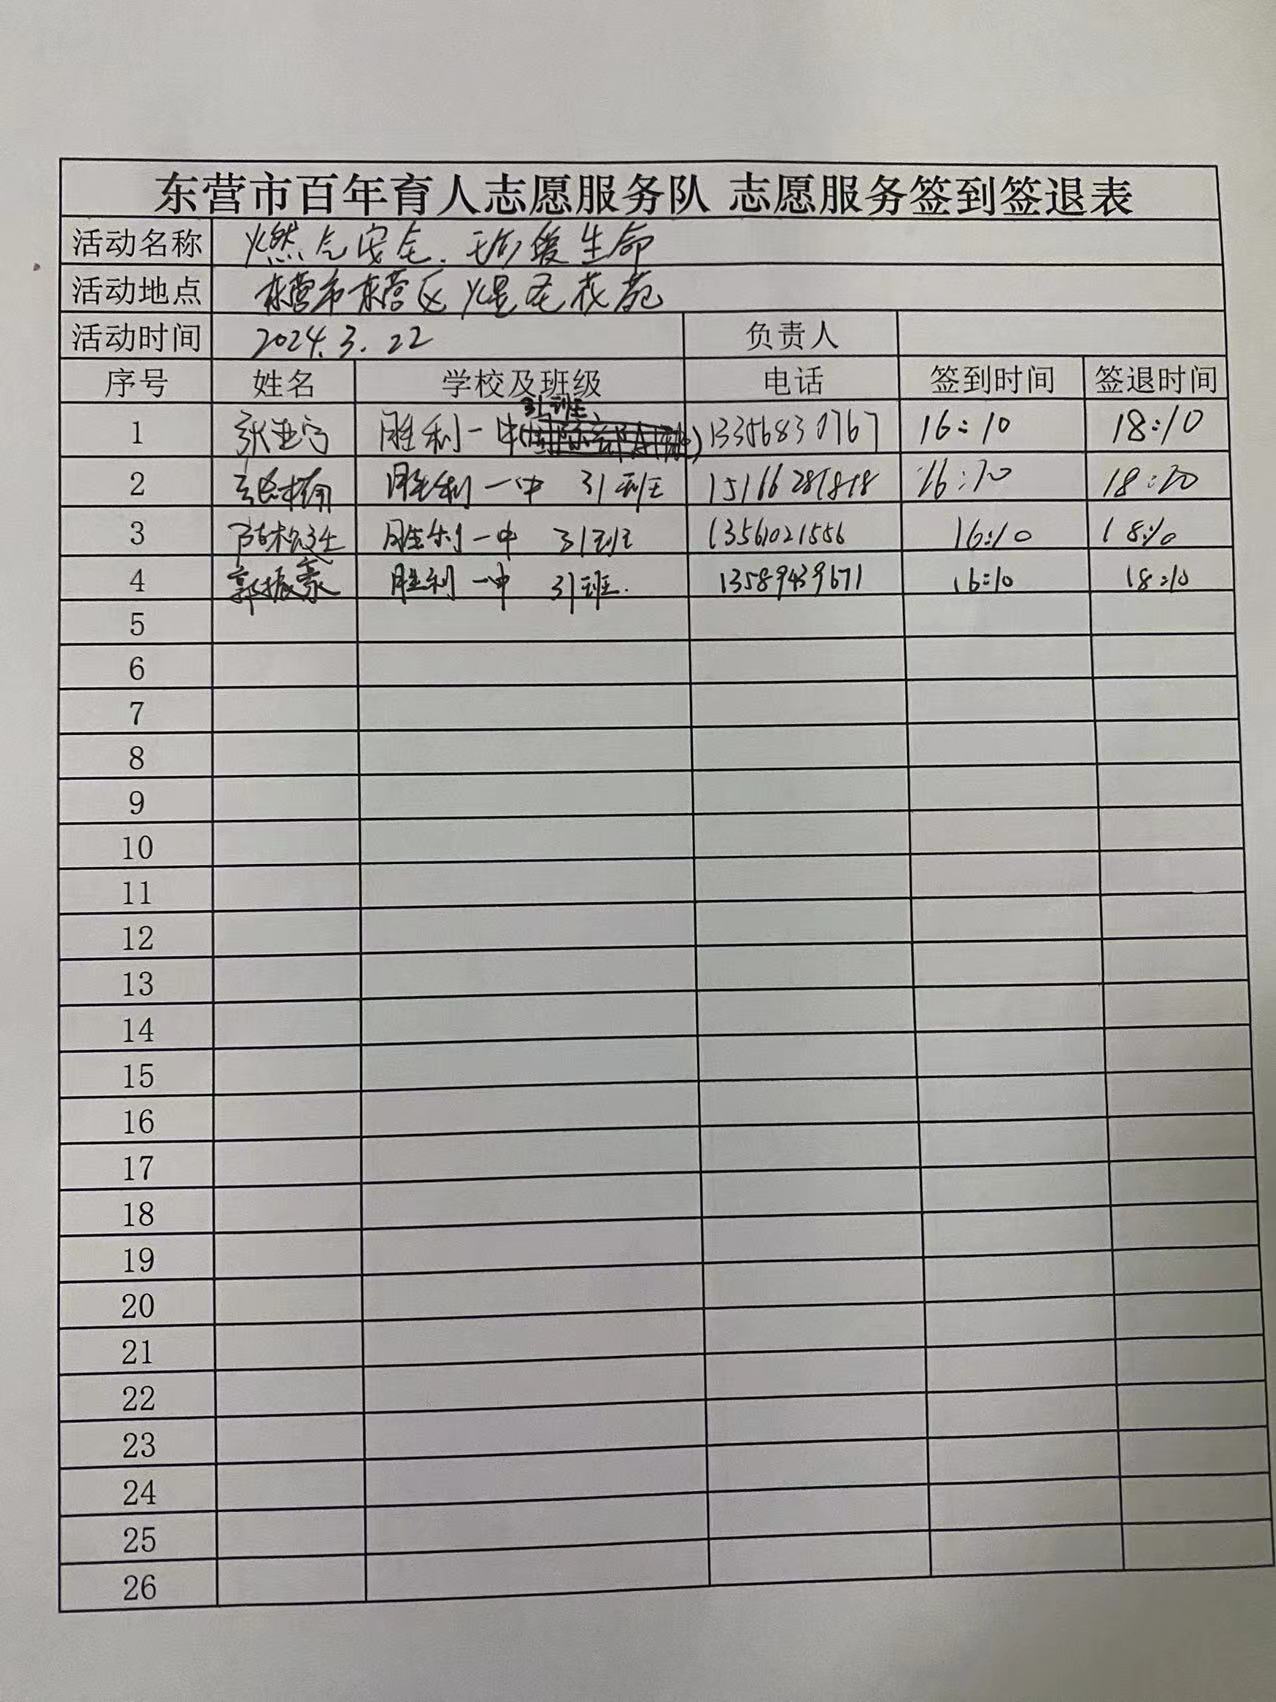 东营市百年育人志愿服务队 志愿服务签到签退表
活动名称 燃气安全.珍爱生命
活动地点 东营市东营区 花苑
活动时间 2024.3.22 负责人
序号 姓名 学校及班级 电话 签到时间 签退时间
31班
1 张亚宁 胜利一中 13356830767 16:10 18:10
2 胜利一中 31班 18:20
3 胜利一中 31班 13561021556 16:10 18:10
4 郭振豪 胜利一中 31班. 13589439671 16:10 18:10
5
6
7
8
9
10
11
12
13
14
15
16
17
18
19
20
21
22
23
24
25
26